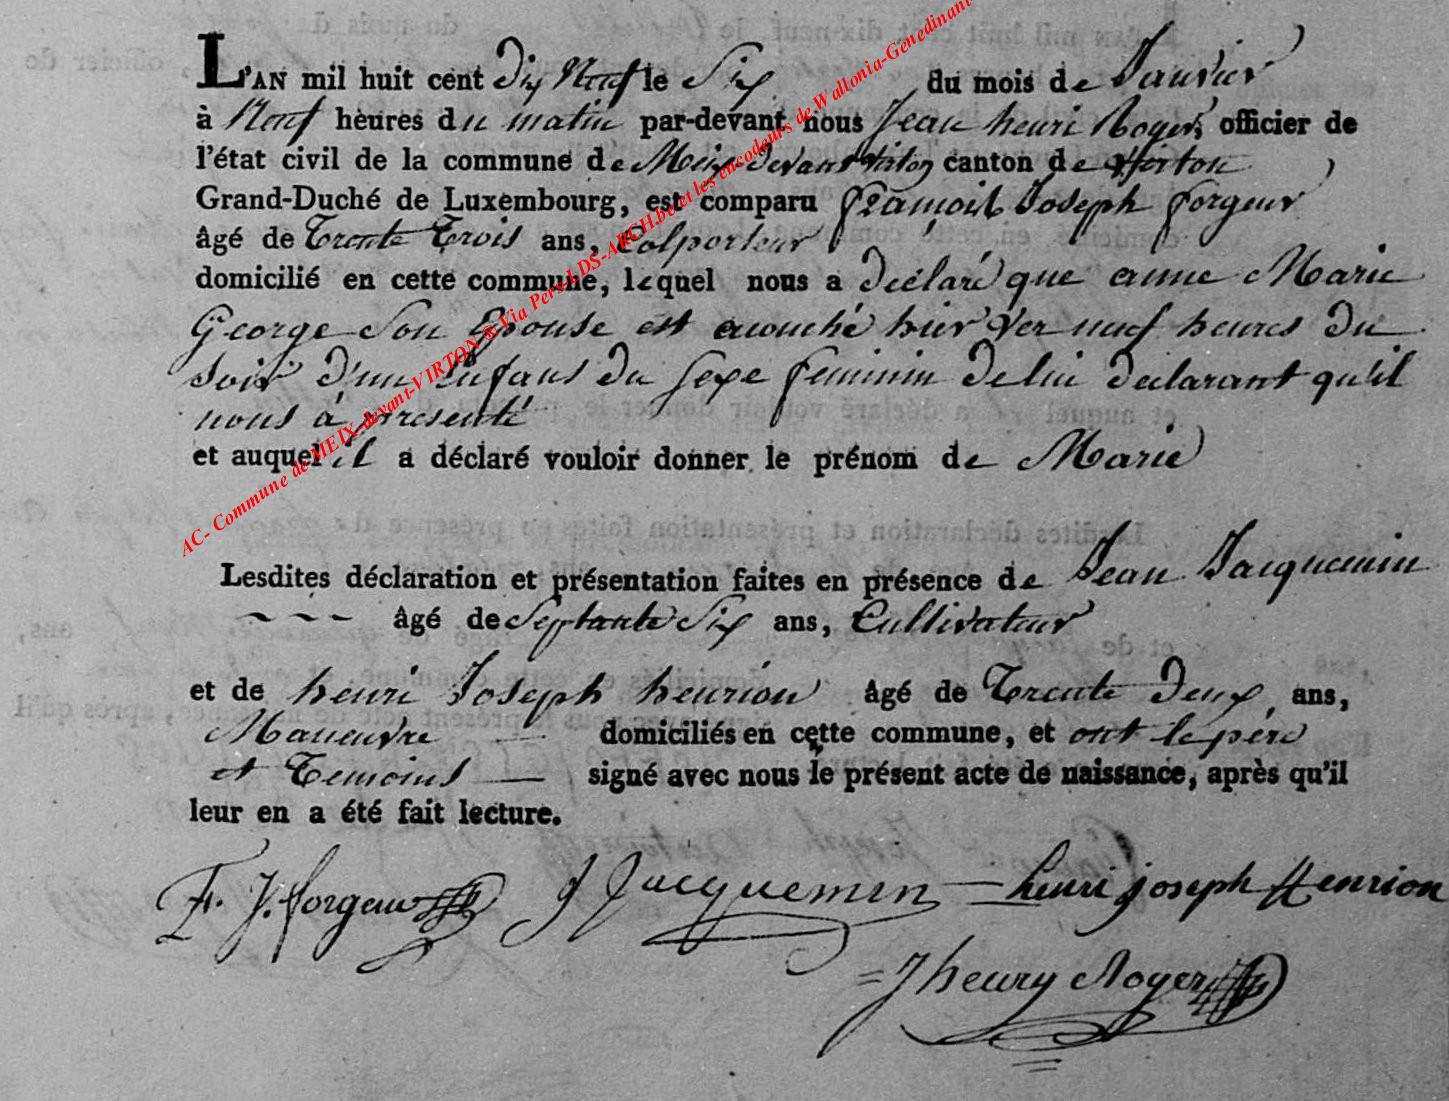 L'AN mil huit cent Dix Neuf le Six du mois de Janvier
à Neuf heures du matin par-devant nous Jean henri Roger, officier de
l'état civil de la commune de Meix devant Virton canton de Virton
Grand-Duché de Luxembourg, est comparu françois Joseph forgeur
âgé de Trente Trois ans, Colporteur
domicilié en cette commune, lequel nous a déclaré que anne Marie
George Son Epouse est acouché hier Ver neuf heures du
Soir d'un Enfans du Sexe feminin de lui declarant qu'il
nous à presenté
et auquel il a déclaré vouloir donner le prénom de Marie
Lesdites déclaration et présentation faites en présence de Jean Jacquemin
âgé de Septante Six ans, Cultivateur
et de henri Joseph henrion âgé de Trente Deux ans,
Maneuvre domiciliés en cette commune, et ont le pére
et Temoins signé avec nous le présent acte de naissance, après qu'il
leur en a été fait lecture.
F. J. forgeur J Jacquemin henri joseph Henrion
J henry Roger
AC- Commune de MEIX-devant-VIRTON Via Pers-LDS-ARCH.be et les encodeurs de Wallonia-Genedinant